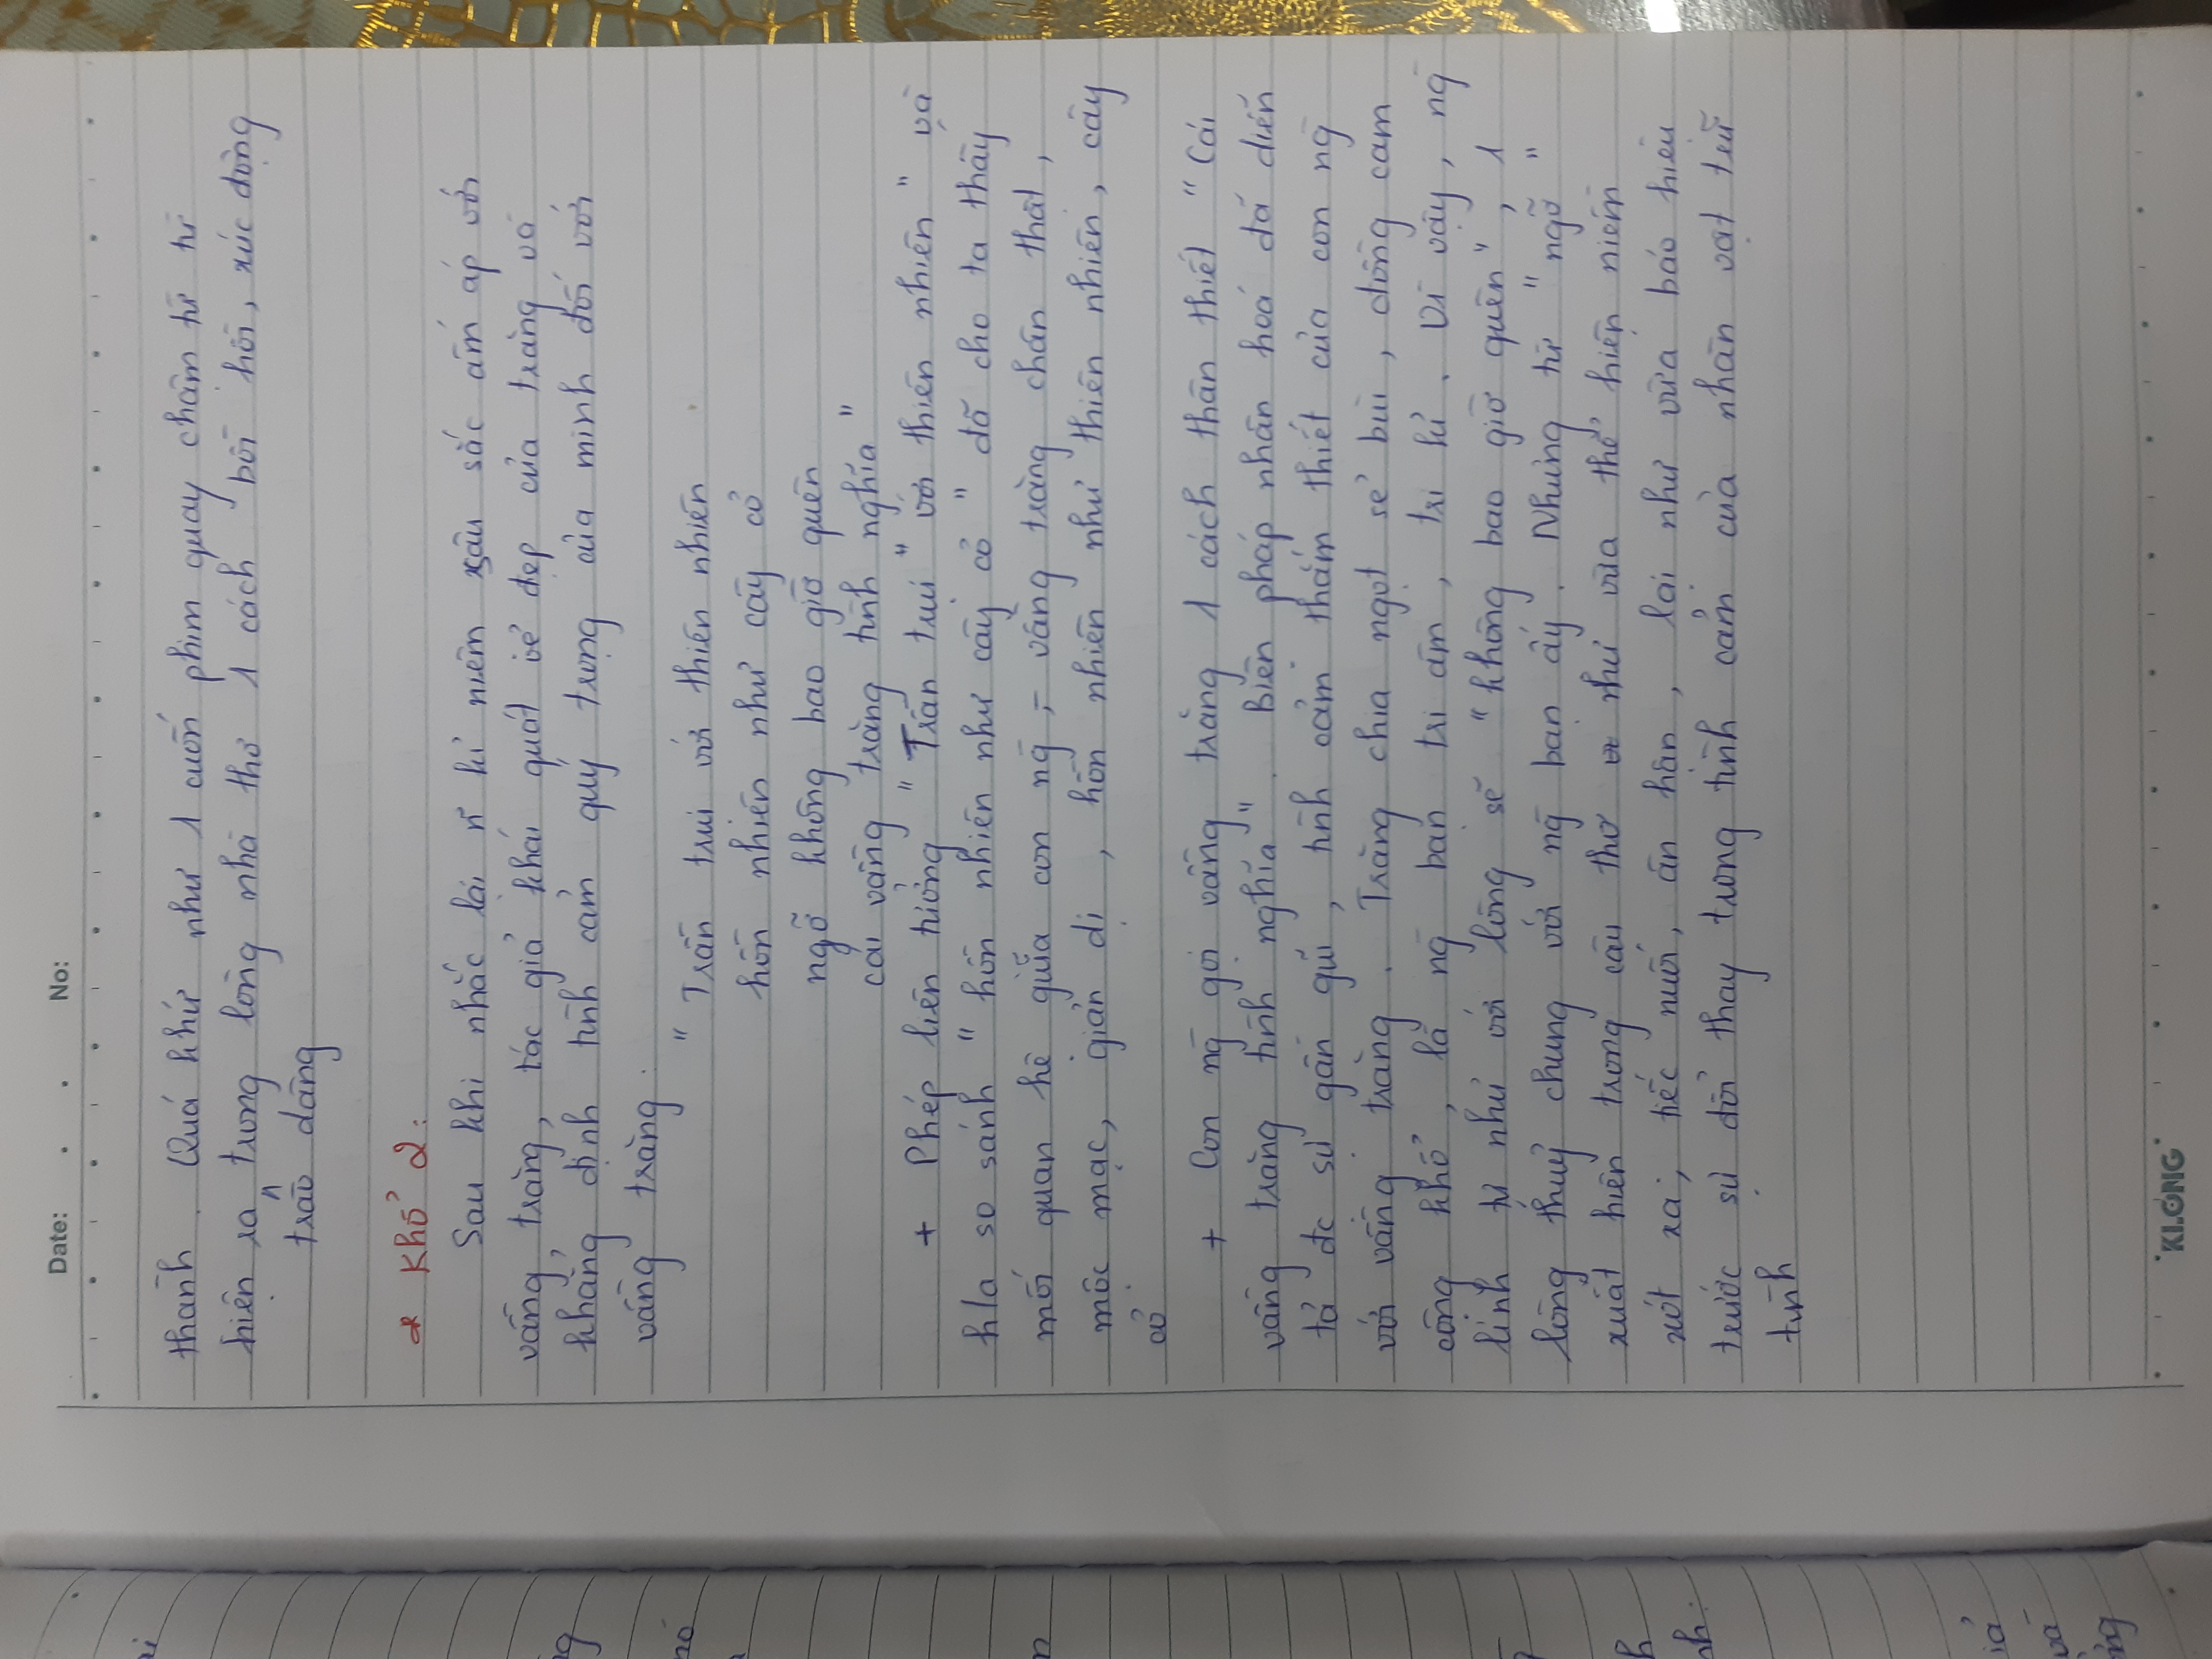 Date: . . No:
thanh. Quá khứ như 1 cuốn phim quay chậm từ từ
hiện ra trong lòng nhà thơ 1 cách bồi hồi, xúc động
trào dâng
* Khổ 2:
Sau khi nhắc lại n~ kỉ niệm sâu sắc ấm áp với
vầng trăng, tác giả khái quát vẻ đẹp của trăng và
khẳng định tình cảm quý trọng của mình đối với
vầng trăng.
" Trần trụi với thiên nhiên
hồn nhiên như cây cỏ
ngỡ không bao giờ quên
cái vầng trăng tình nghĩa "
+ Phép liên tưởng " Trần trụi " với thiên nhiên " và
h/a so sánh " hồn nhiên như cây cỏ " đã cho ta thấy
mối quan hệ giữa con ng̀ - vầng trăng chân thật,
mộc mạc, giản dị, hồn nhiên như thiên nhiên, cây
cỏ
+ Con ng̀ gọi vầng trăng 1 cách thân thiết " Cái
vầng trăng tình nghĩa ". Biện pháp nhân hoá đã diễn
tả đc sự gần gũi, tình cảm thắm thiết của con ng̀
với vầng trăng. Trăng chia ngọt sẻ bùi, đồng cam
cộng khổ, là ng̀ bạn tri âm, tri kỉ. Vì vậy, ng̀
lính tự nhủ với lòng sẽ " không bao giờ quên ", 1
lòng thuỷ chung với ng̀ bạn ấy. Nhưng từ " ngỡ "
xuất hiện trong câu thơ như vừa thể hiện niềm
xót xa, tiếc nuối, ân hận, lại như vừa báo hiệu
trước sự đổi thay trong tình cảm của nhân vật trữ
tình
KLONG